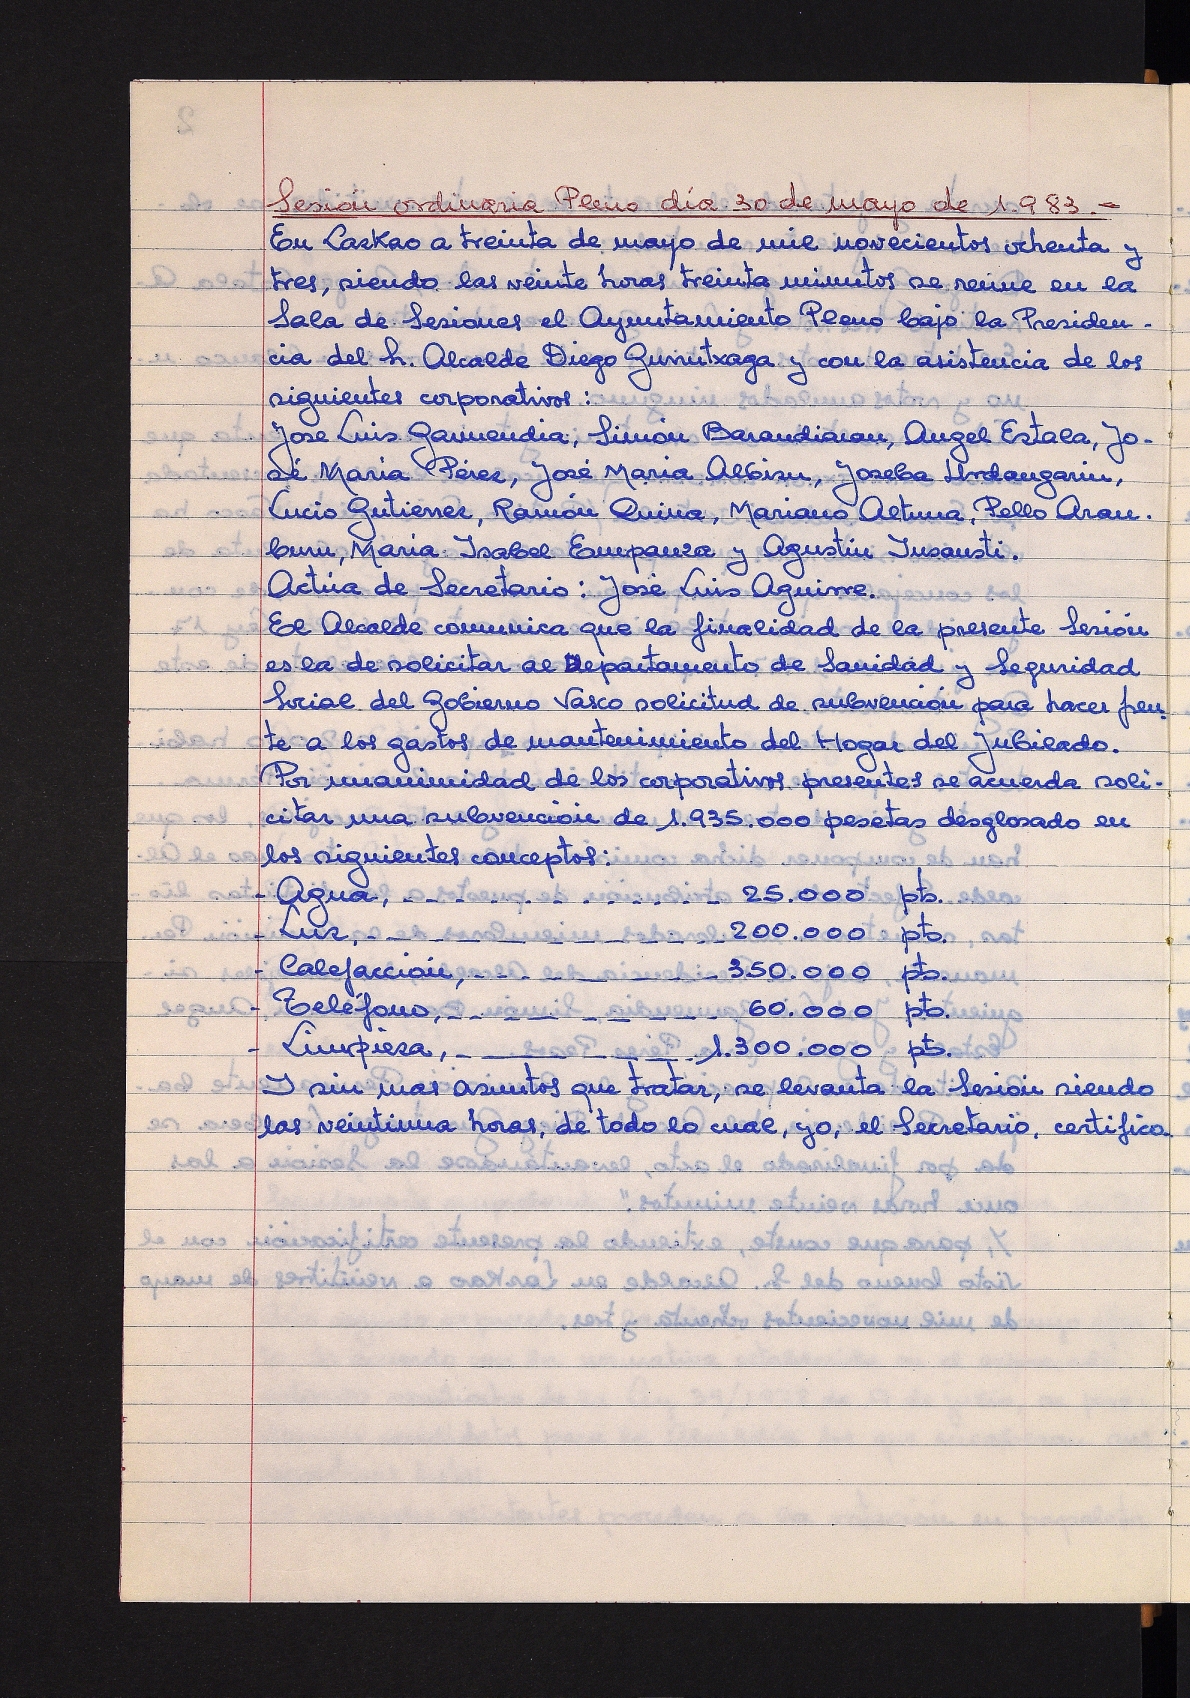 Sesión ordinaria Pleno día 30 de mayo de 1.983.-
En Lazkao a treinta de mayo de mil novecientos ochenta y
tres, siendo las veinte horas treinta minutos se reune en la
Sala de Sesiones el Ayuntamiento Pleno bajo la Presiden-
cia del S. Alcalde Diego Gurrutxaga y con la asistencia de los
siguientes corporativos:
Jose Luis Garmendia, Simón Barandiaran, Angel Estala, Jo-
sé Maria Pérez, José Maria Albisu, Joseba Urdangarin,
Lucio Gutierrez, Ramón Quina, Mariano Altuna, Pello Aran-
buru, Maria Isabel Emparanza y Agustin Insausti.
Actúa de Secretario: José Luis Aguirre.
El Alcalde comunica que la finalidad de la presente Sesión
es la de solicitar al Departamento de Sanidad y Seguridad
Social del Gobierno Vasco solicitud de subvención para hacer fren-
te a los gastos de mantenimiento del Hogar del Jubilado.
Por unanimidad de los corporativos presentes se acuerda soli-
citar una subvención de 1.935.000 pesetas desglosado en
los siguientes conceptos:
- Agua, - - - - - - - - - - - - 25.000 pts.
- Luz, - - - - - - - - - - - - 200.000 pts.
- Calefacción, - - - - - - - - 350.000 pts.
- Teléfono, - - - - - - - - - 60.000 pts.
- Limpieza, - - - - - - - - 1.300.000 pts.
I sin mas asuntos que tratar, se levanta la Sesión siendo
las veintiuna horas, de todo lo cual, yo, el Secretario, certifico.